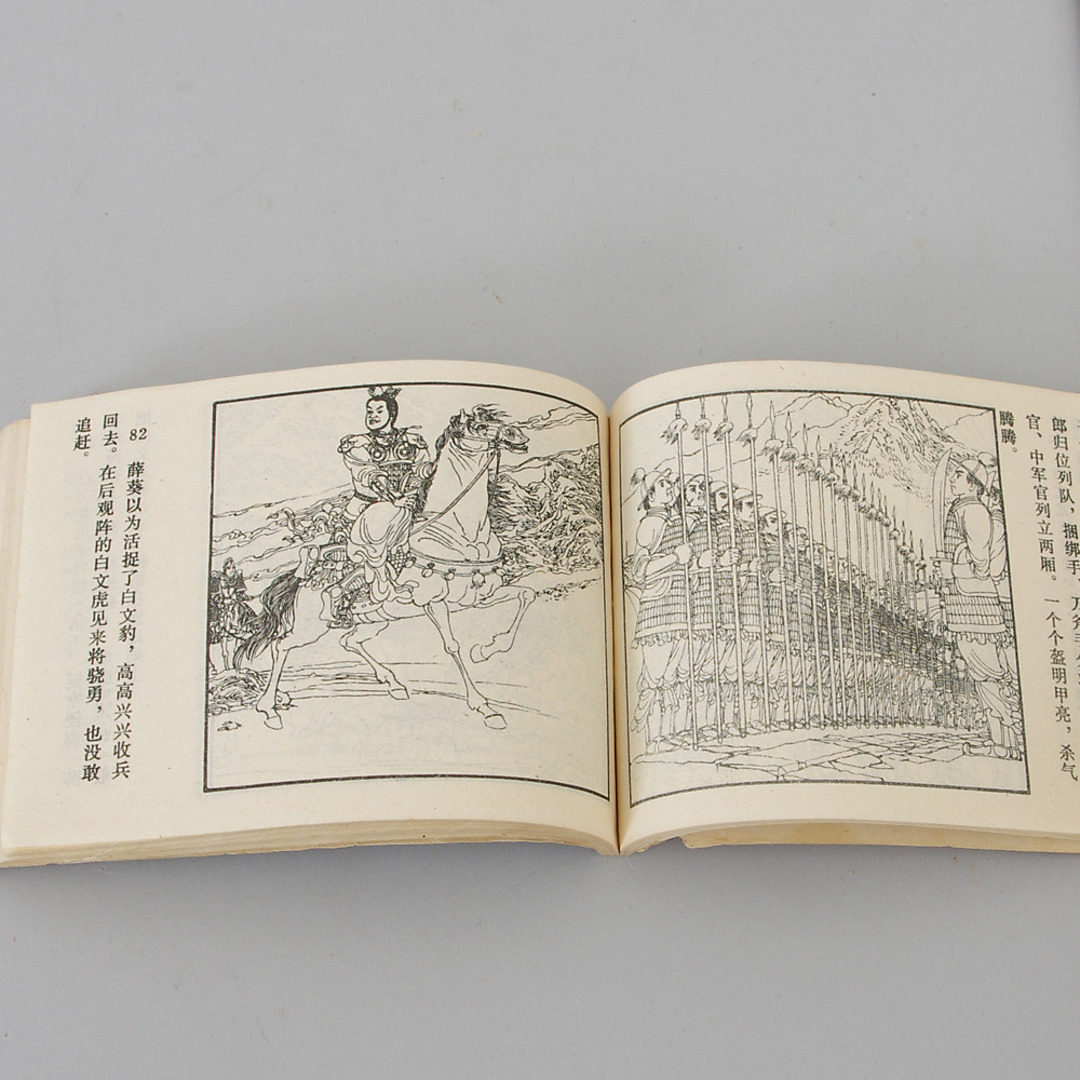 82 薛葵以为活捉了白文豹，高高兴兴收兵
回去。在后观阵的白文虎见来将骁勇，也没敢
追赶。
郎归位列队，捆绑手、刀斧手
官、中军官列立两厢。一个个盔明甲亮，杀气
腾腾。